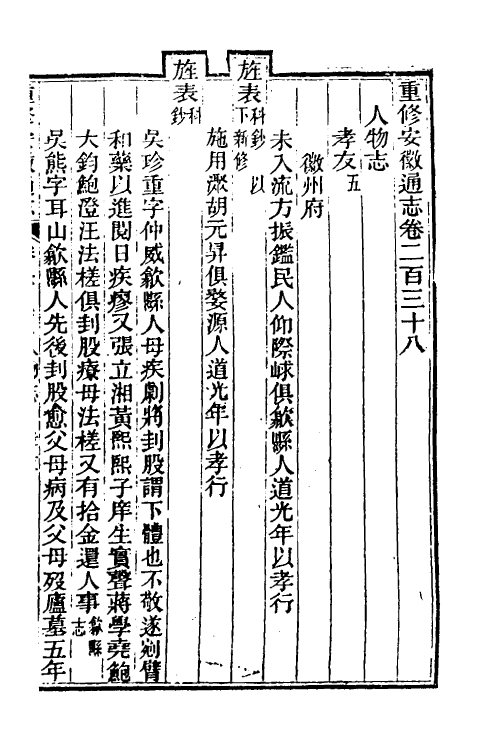 重修安徽通志卷二百三十八
人物志
孝友五
徽州府
旌表科鈔以下新修
未入流方振鑑民人仰際嵘俱歙縣人道光年以孝行
施用漋胡元昇俱婺源人道光年以孝行
旌表科鈔
吳珍重字仲威歙縣人母疾劇將刲股謂下體也不敬遂剜臂
和藥以進閱日疾瘳又張立湘黃熙熙子庠生實聲蔣學堯鮑
大鈞鮑澄汪法槎俱刲股療母法槎又有拾金還人事歙縣志
吳熊字耳山歙縣人先後刲股愈父母病及父母歿廬墓五年